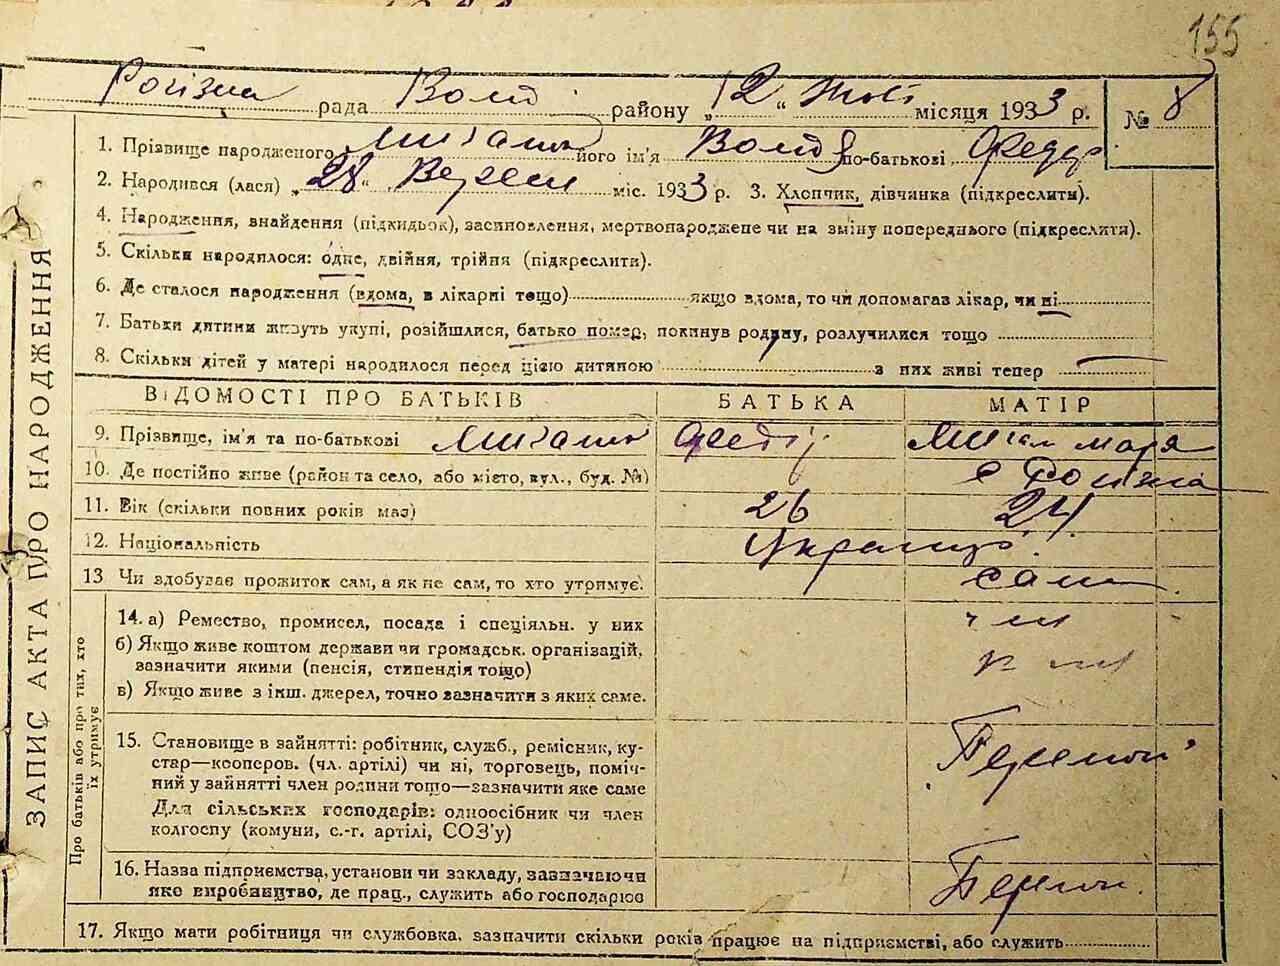 155
рада Волод району „12“ Жовт місяця 1933 р. № 8
1. Прізвище народженого його ім'я Волод по-батькові Федор
2. Народився (лася) „28“ Верес міс. 1933 р. 3. Хлопчик, дівчинка (підкреслити).
4. Народження, знайдення (підкидьок), засиновлення, мертвонароджене чи на зміну попереднього (підкреслити).
5. Скільки народилося: одне, двійня, трійня (підкреслити).
6. Де сталося народження (вдома, в лікарні тощо) якщо вдома, то чи допомагав лікар, чи ні
7. Батьки дитини живуть укупі, розійшлися, батько помер, покинув родину, розлучилися тощо
8. Скільки дітей у матері народилося перед цією дитиною з них живі тепер —
ЗАПИС АКТА ПРО НАРОДЖЕННЯ
ВІДОМОСТІ ПРО БАТЬКІВ БАТЬКА МАТІР
9. Прізвище, ім'я та по-батькові Федор Мария
10. Де постійно живе (район та село, або місто, вул., буд. №) с
11. Вік (скільки повних років має) 26 24
12. Національність Украинці
13 Чи здобуває прожиток сам, а як не сам, то хто утримує. сам
Про батьків або про тих, хто їх утримує
14. а) Ремество, промисел, посада і спеціяльн. у них
б) Якщо живе коштом держави чи громадськ. організацій,
зазначити якими (пенсія, стипендія тощо)
в) Якщо живе з інш. джерел, точно зазначити з яких саме.
15. Становище в зайнятті: робітник, служб., ремісник, ку-
стар—кооперов. (чл. артілі) чи ні, торговець, поміч-
ний у зайнятті член родини тощо—зазначити яке саме
Для сільських господарів: одноосібник чи член
колгоспу (комуни, с.-г. артілі, СОЗ'у)
16. Назва підприємства, установи чи закладу, зазначаючи
яке виробництво, де прац., служить або господарює
17. Якщо мати робітниця чи службовка, зазначити скільки років працює на підприємстві, або служить